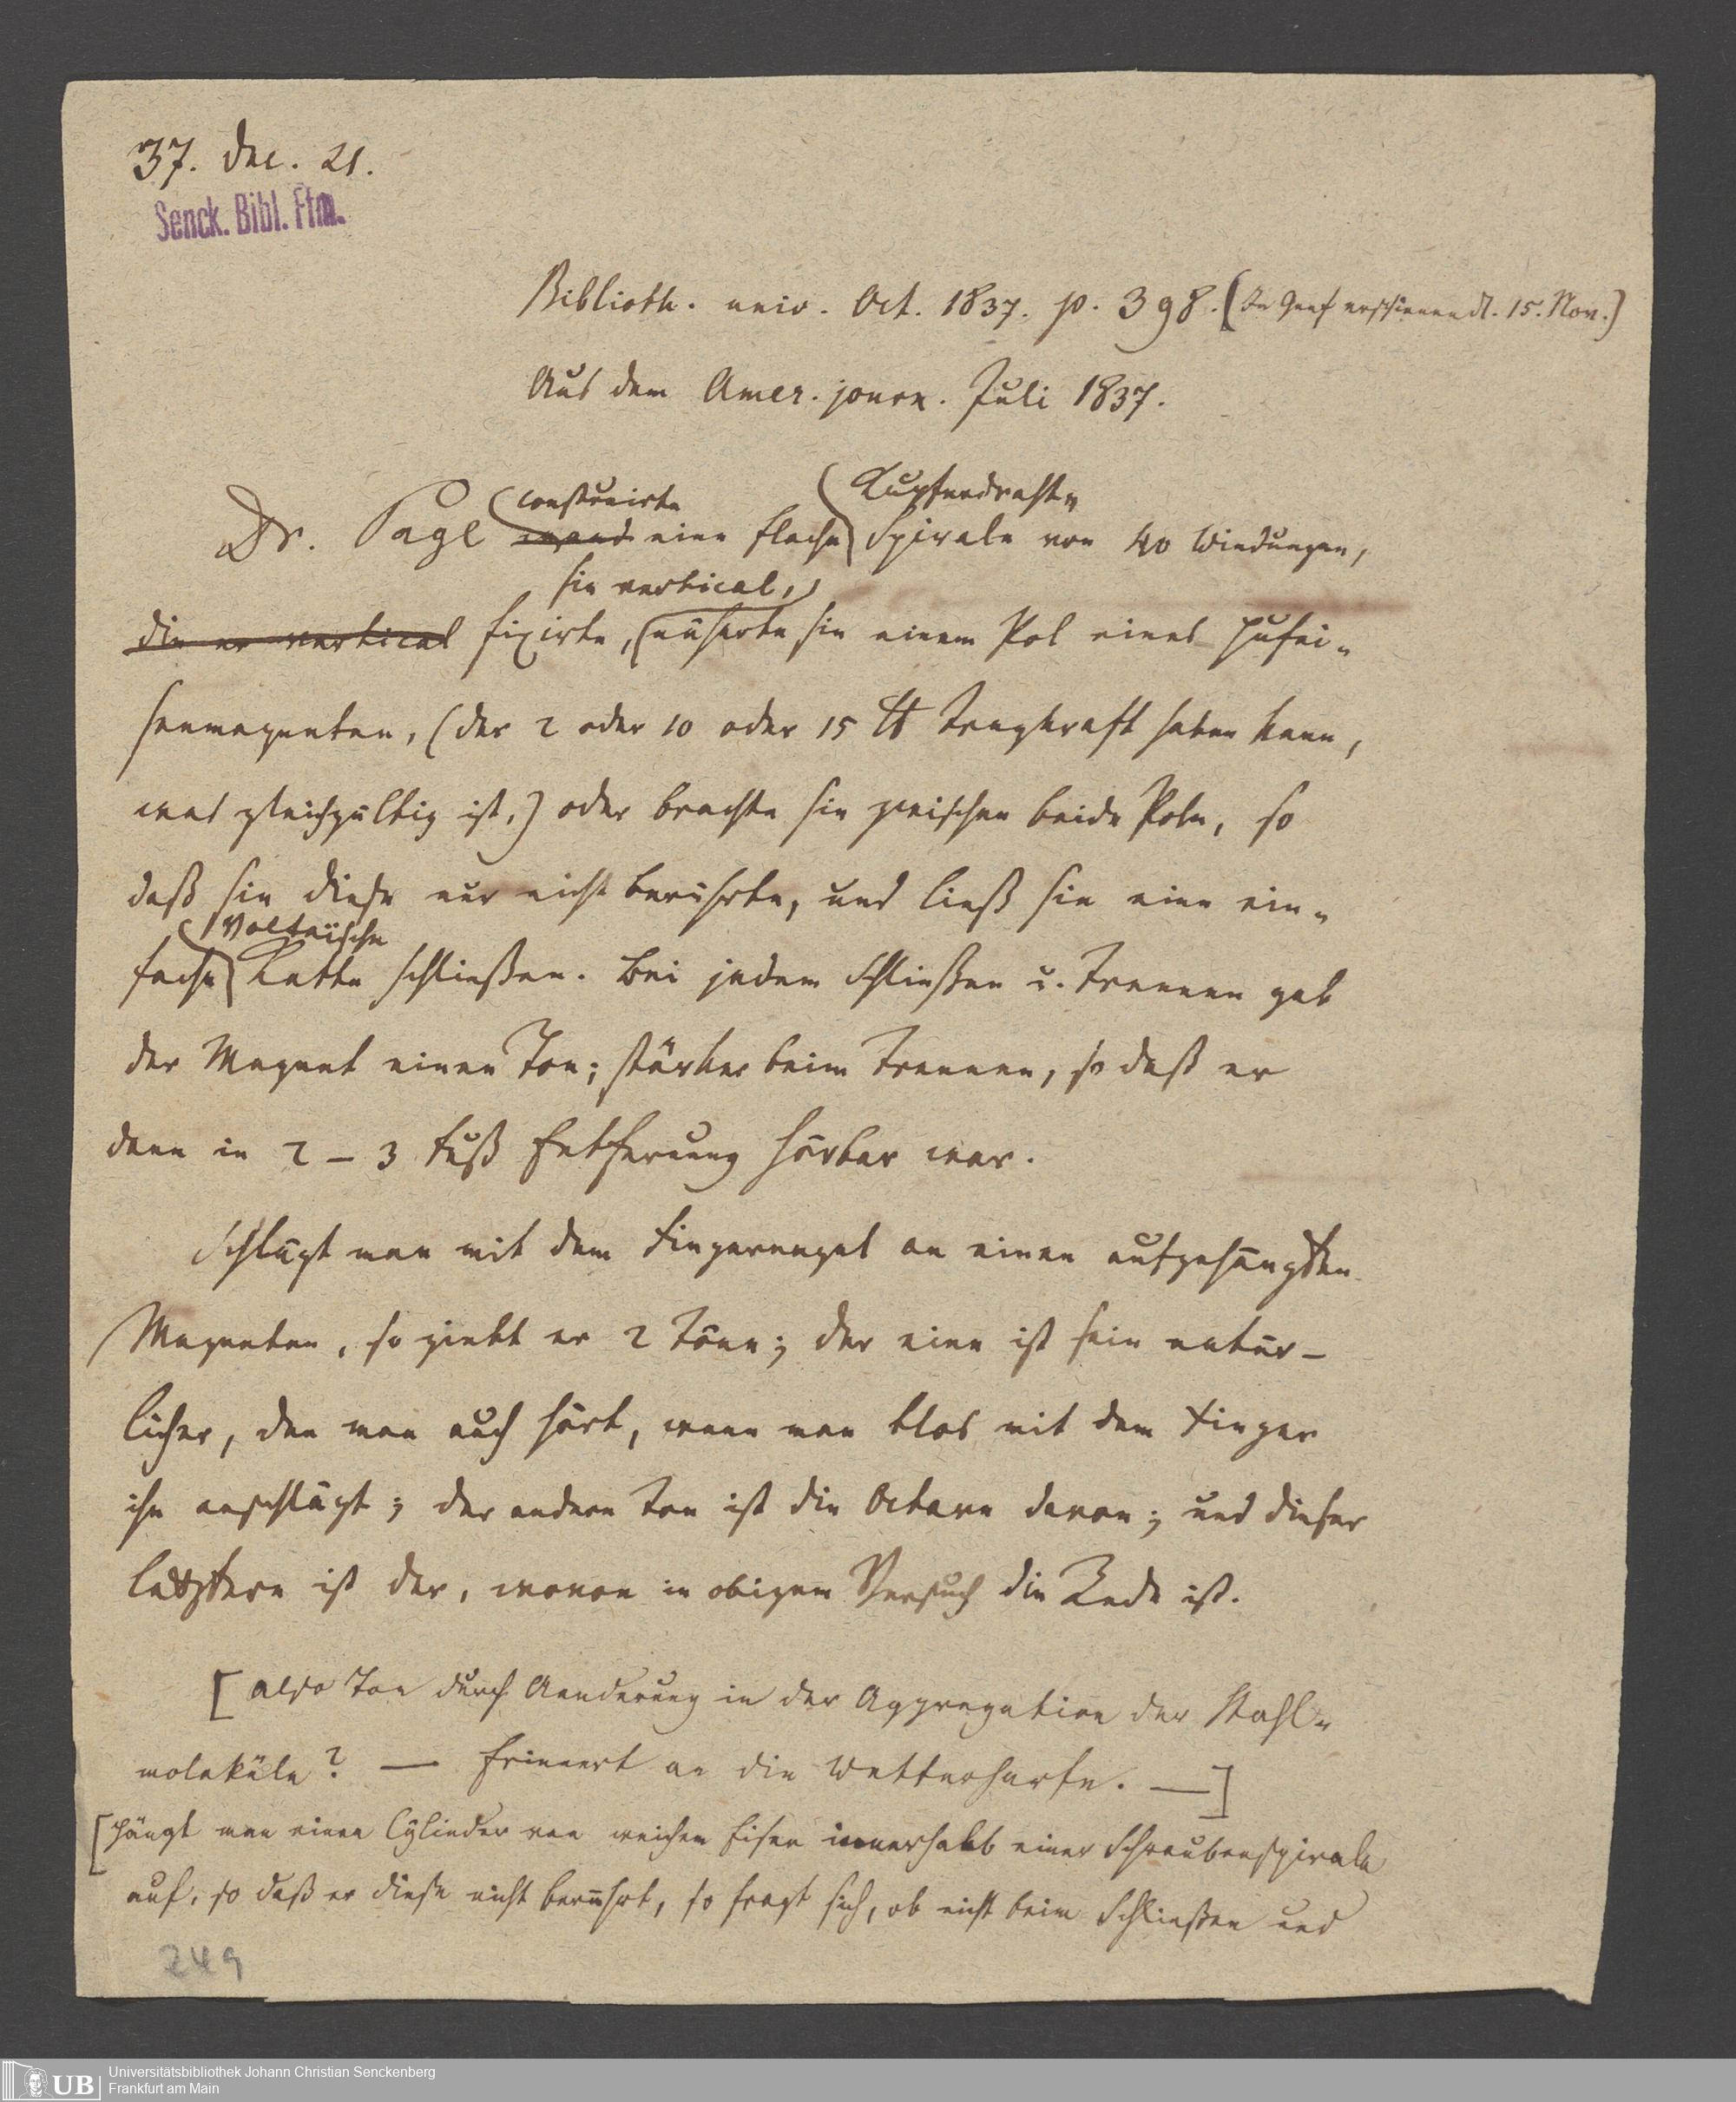 37. Dec. 21.
Senck. Bibl. Ffm.
Biblioth. univ. Oct. 1837. p. 398. (In Genf erschienen d. 15. Nov.)
Aus dem Amer. journ. Juli 1837.
construirte Kupferdraht-
Dr. Page wand eine flache Spirale von 40 Windungen,
sie vertical,
die er vertical fixirte, näherte sie einem Pol eines Hufei-
senmagneten, (der 2 oder 10 oder 15 ℔ Tragkraft haben kann,
was gleichgültig ist,) oder brachte sie zwischen beide Pole, so
daß sie diese nur nicht berührte, und ließ sie eine ein-
Voltaische
fache Kette schließen. Bei jedem Schließen u. Trennen gab
der Magnet einen Ton; stärker beim Trennen, so daß er
dann in 2 – 3 Fuß Entfernung hörbar war.
Schlägt man mit dem Fingernagel an einen aufgehängten
Magneten, so giebt er 2 Töne; der eine ist sein natür-
licher, den man auch hört, wenn man blos mit dem Finger
ihn anschlägt; der andere Ton ist die Octave davon; und dieser
letztere ist der, wovon in obigem Versuch die Rede ist.
[Also Ton durch Aenderung in der Aggregation der Stahl-
moleküle? — Erinnert an die Wetterharfe. —]
[Hängt man einen Cylinder von weichem Eisen innerhalb einer Schraubenspirale
auf, so daß er diese nicht berührt, so fragt sich, ob nicht beim Schließen und
249
UB
Universitätsbibliothek Johann Christian Senckenberg
Frankfurt am Main